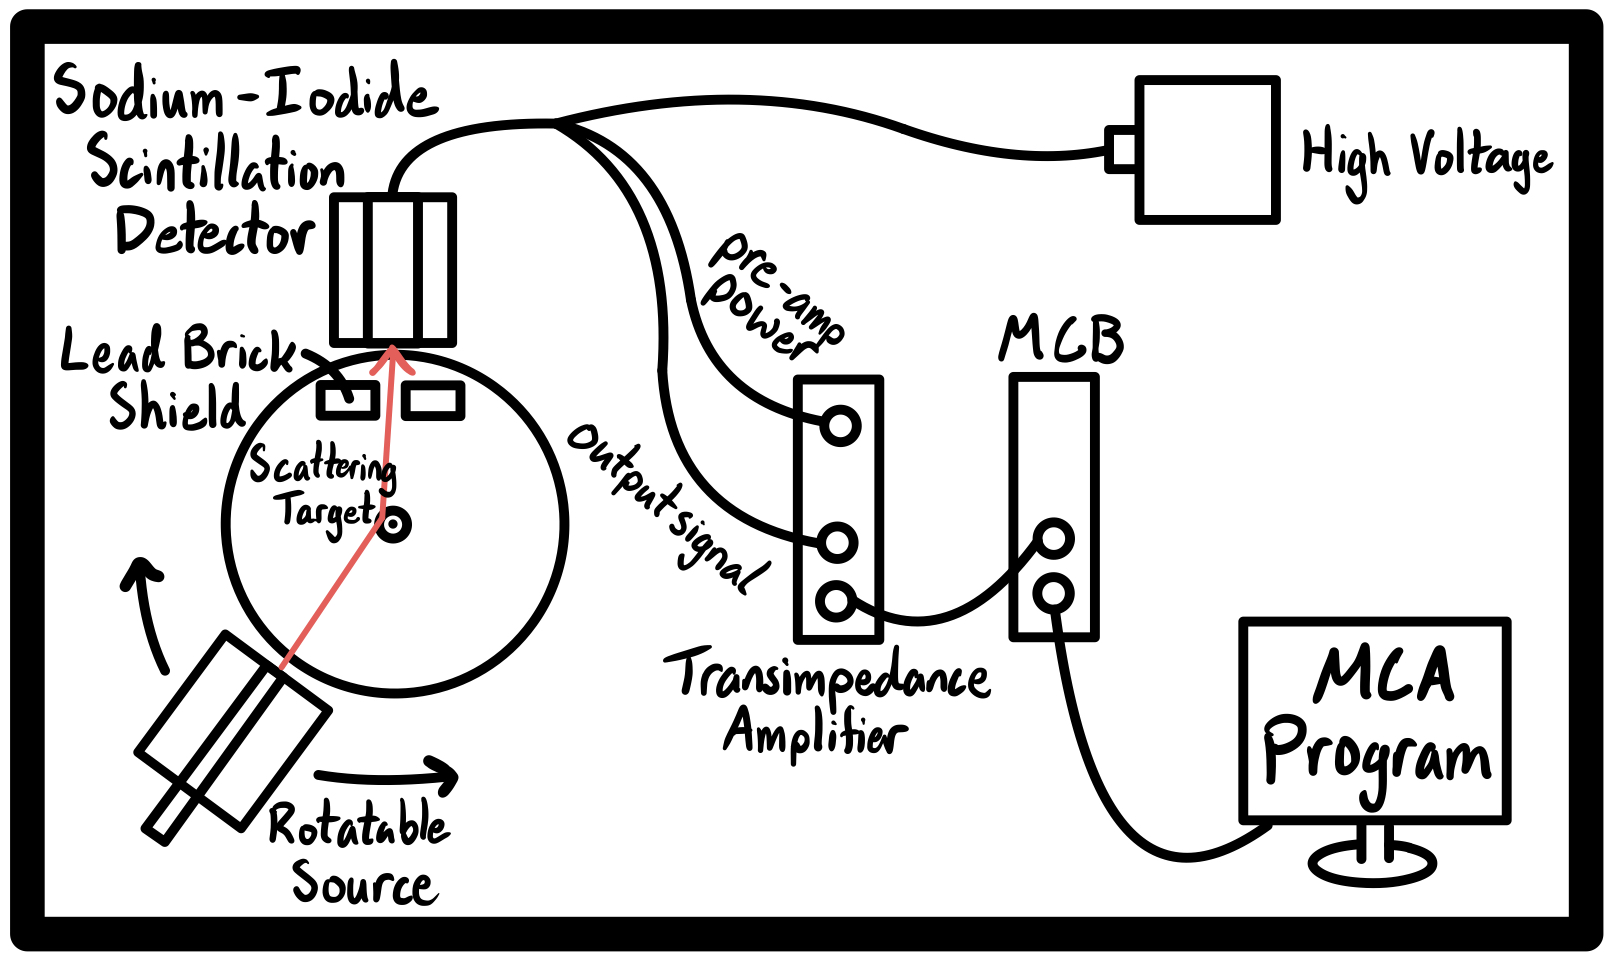 Sodium-Iodide
Scintillation
Detector
High Voltage
Lead Brick
Shield
pre-amp
power
MCB
Scattering
Target
Output signal
Transimpedance
Amplifier
MCA
Program
Rotatable
Source